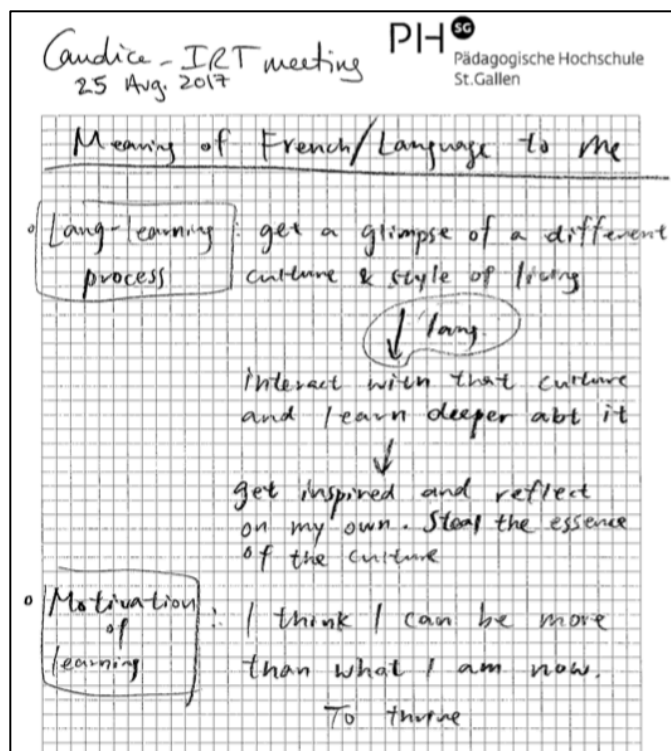 Candice - IRT meeting
25 Aug. 2017
PH SG
Pädagogische Hochschule
St.Gallen
Meaning of French/Language to me
Lang-learning : get a glimpse of a different
process culture & style of living
lang.
interact with that culture
and learn deeper abt it
get inspired and reflect
on my own. Steal the essence
of the culture
Motivation
of : I think I can be more
learning than what I am now.
To thrive